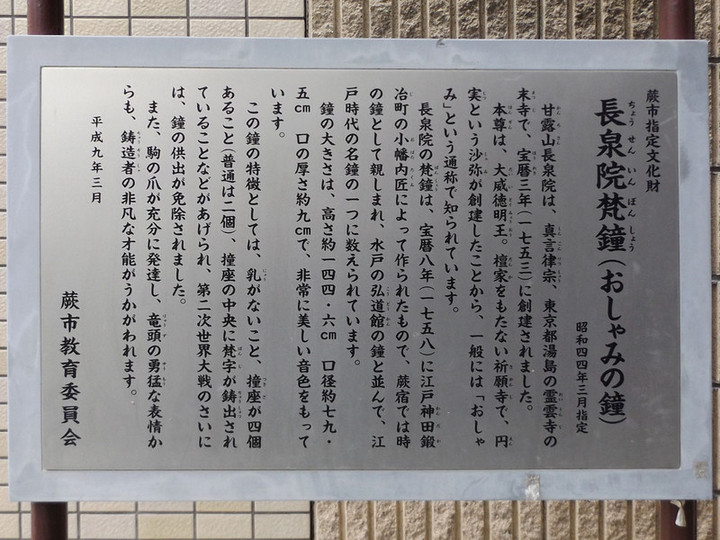 蕨市指定文化財
長泉院梵鐘(おしゃみの鐘)
ちょう せん いん ぼん しょう
昭和四四年三月指定
甘露山長泉院は、真言律宗、東京都湯島の霊雲寺の
末寺で、宝暦三年(一七五三)に創建されました。
本尊は、大威徳明王。檀家をもたない祈願寺で、円
実という沙弥が創建したことから、一般には「おしゃ
み」という通称で知られています。
長泉院の梵鐘は、宝暦八年(一七五八)に江戸神田鍛
冶町の小幡内匠によって作られたもので、蕨宿では時
の鐘として親しまれ、水戸の弘道館の鐘と並んで、江
戸時代の名鐘の一つに数えられています。
鐘の大きさは、高さ約一四四・六cm 口径約七九・
五cm 口の厚さ約九cmで、非常に美しい音色をもって
います。
この鐘の特徴としては、乳がないこと、撞座が四個
あること(普通は二個)、撞座の中央に梵字が鋳出され
ていることなどがあげられ、第二次世界大戦のさいに
は、鐘の供出が免除されました。
また、駒の爪が充分に発達し、竜頭の勇猛な表情か
らも、鋳造者の非凡な才能がうかがわれます。
平成九年三月
蕨市教育委員会